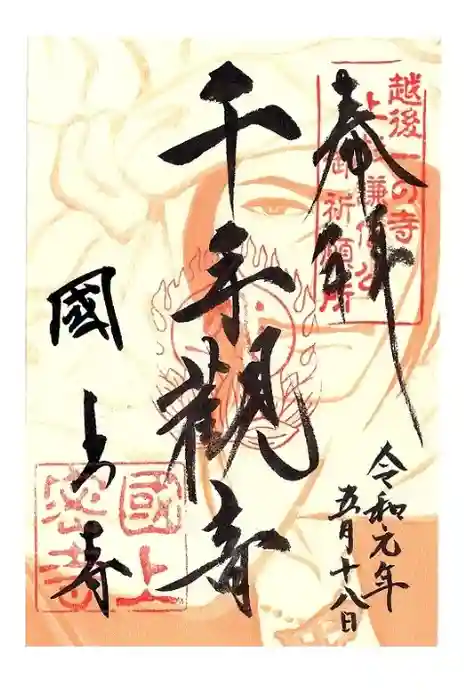 奉拝
越後一の寺
上杉謙信公
御祈願所
千手観音
國上寺
國上
密寺
令和元年
五月十八日